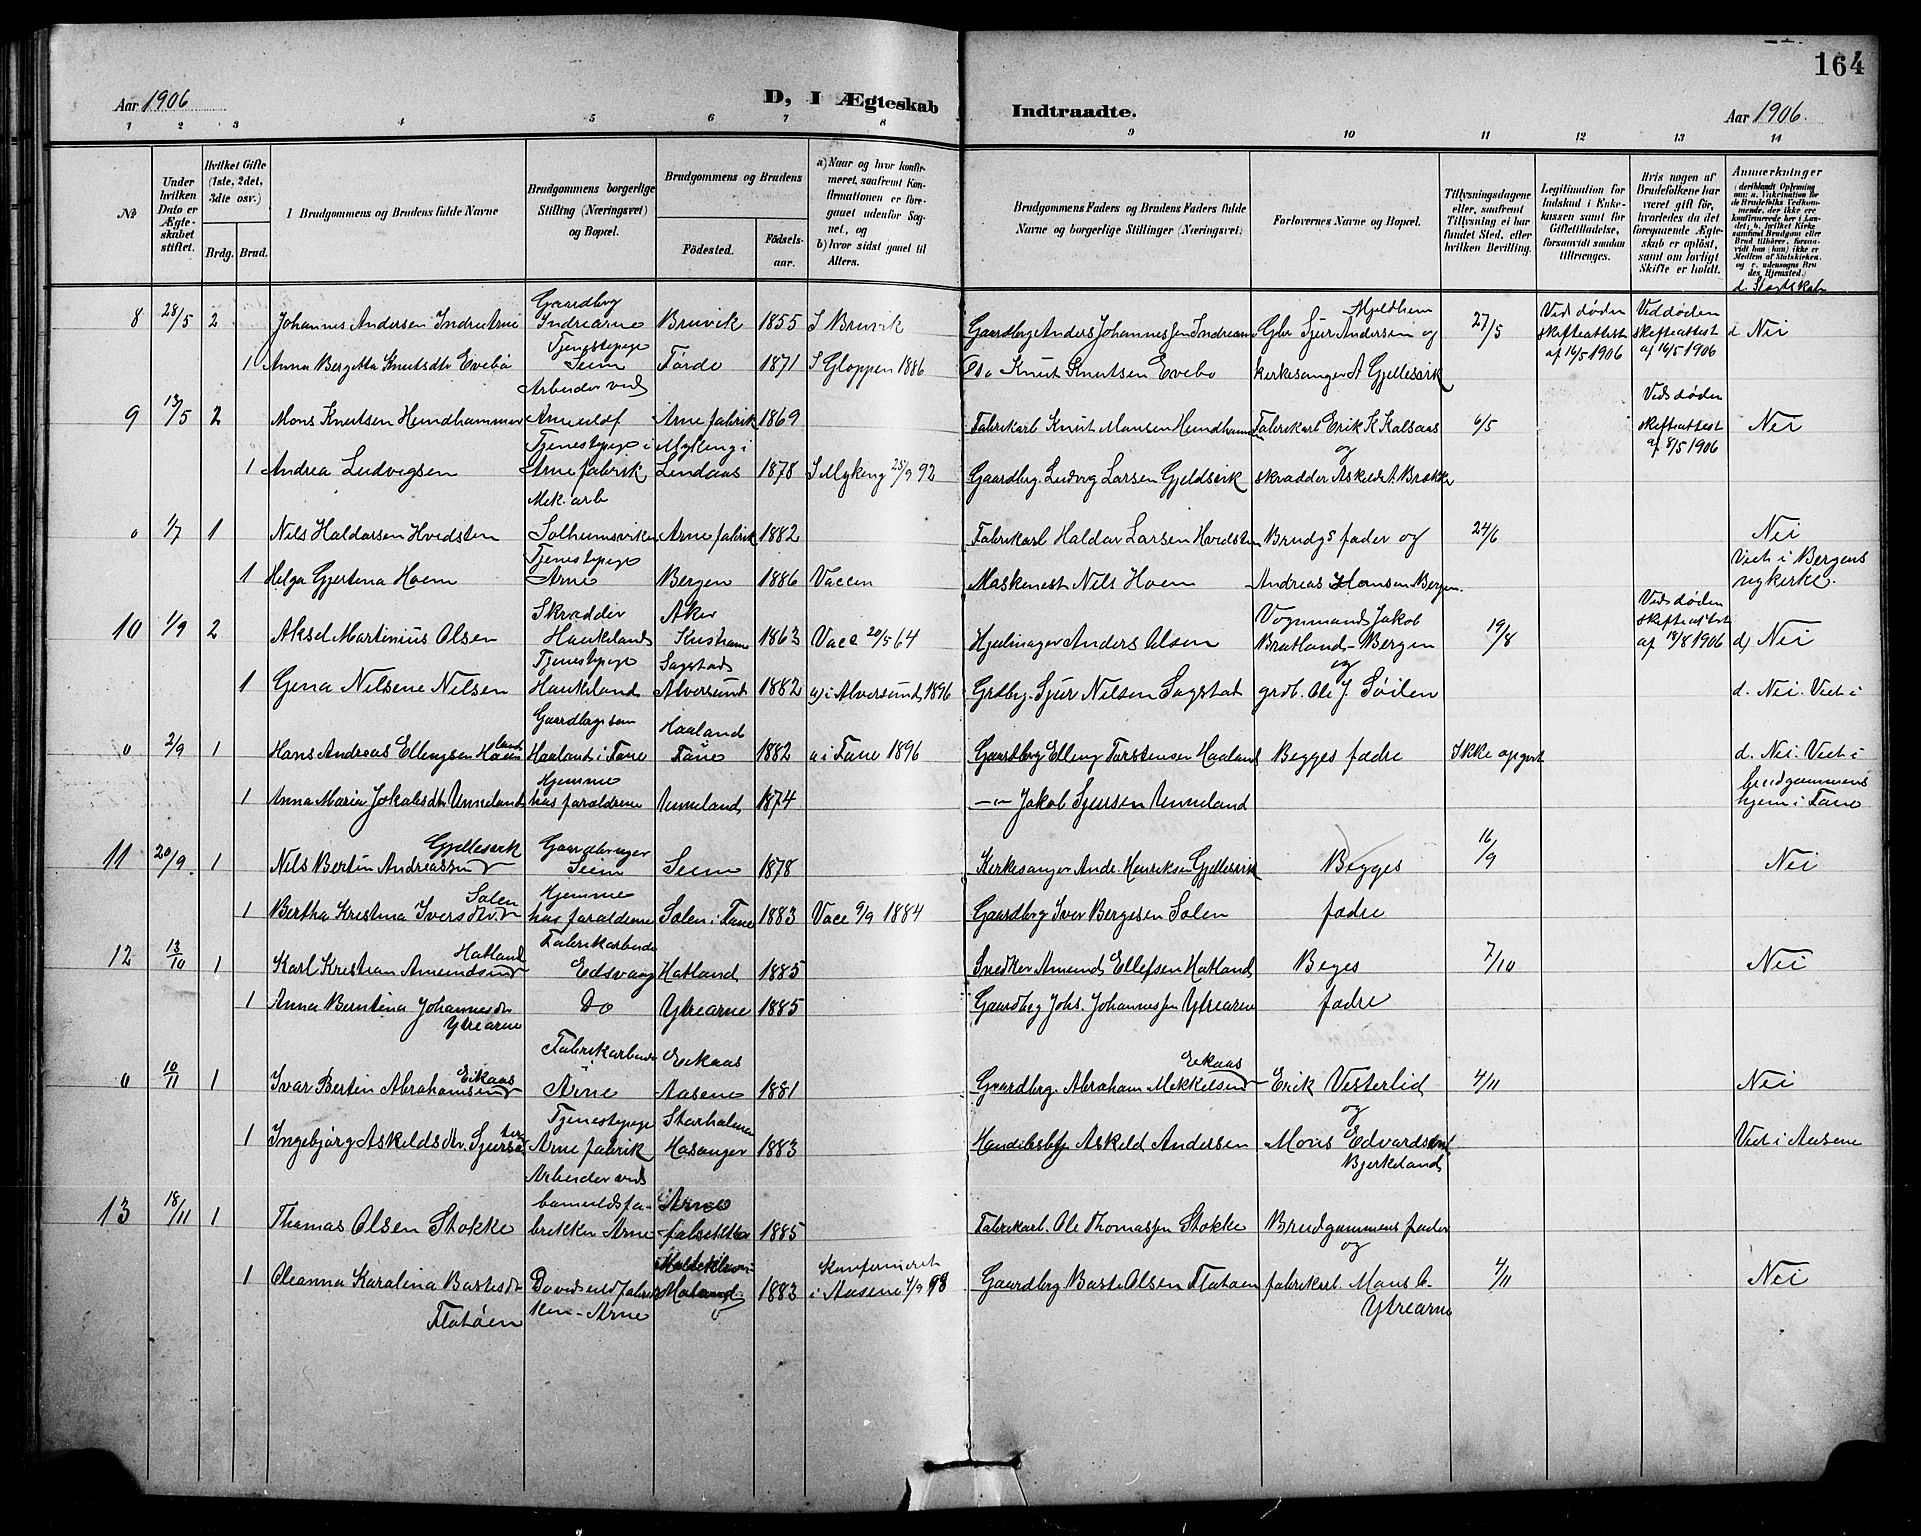 164
Aar 1906
D, I Ægteskab
Indtraadte.
Aar 1906.
1 2 3 4 5 6 7 8 9 10 11 12 13 14
No
Under hvilken Dato er Ægteskabet stiftet.
Hvilket Gifte (1ste, 2det, 3die osv.)
Brdg. Brud.
I Brudgommens og Brudens fulde Navne
Brudgommens borgerlige Stilling (Næringsvei) og Bopæl.
Brudgommens og Brudens
Fødested. Fødselsaar.
a) Naar og hvor konfirmeret, saafremt Konfirmationen er foregaaet udenfor Sognet, og b) hvor sidst gaaet til Alters.
Brudgommens Faders og Brudens Faders fulde Navne og borgerlige Stillinger (Næringsvei)
Forlovernes Navne og Bopæl.
Tillysningsdagene eller, saafremt Tillysning ei har fundet Sted, efter hvilken Bevilling.
Legitimation for Indskud i Enkekassen samt for Giftetilladelse, forsaavidt saadan tiltrænges.
Hvis nogen af Brudefolkene har været gift før, hvorledes da det foregaaende Ægteskab er opløst, samt om lovligt Skifte er holdt.
Anmærkninger
d. Slegtskab
8 28/5 2 Johannes Andersen Indrearne Gaardbrg Indrearne Bruvik 1855 I Bruvik Gaardbrg Anders Johannessen Indrearne Gbr Sjur Andersen Mjeldheim og 27/5 Ved døden skifteattest af 16/5 1906 Ved døden skifteattest af 16/5 1906 Nei
1 Anna Bergetta Knutsdtr Evebø Tjenestepige Seim Førde 1871 I Gloppen 1886 Do Knut Knutsen Evebø kirkesanger A Gjellesvik
9 13/5 2 Mons Knutsen Hundhammer Arbeider ved Arne uldf Arne fabrik 1869 Fabrikarb Knut Monsen Hundhammer Fabrikarb Erik K Kalsaas og 6/5 Ved døden skifteattest af 8/5 1906 Nei
1 Andrea Ludvigsen Tjenestepige i Arne fabrik Myking i Lindaas 1878 I Myking 25/9 92 Gaardbrg. Ludvig Larsen Gjeldsvik skrædder Askild A. Brække
0 1/7 1 Nils Haldorsen Hvidsten Mek. arb Solheimsviken Arne fabrik 1882 Fabrikarb Haldor Larsen Hvidsten Brudgs fader og 24/6 Nei
1 Helga Gjertina Hoem Tjenestepige Arne Bergen 1886 Vaccin Maskinest Nils Hoem Andreas Hansen Bergen. Viet i Bergens nykirke.
10 1/9 2 Aksel Martinius Olsen Skrædder Haukeland Aker Kristiania 1863 Vacc 20/5 64 Hjulmager Anders Olsen Vognmand Jakob Bratland - Bergen og 19/8 Ved døden skifteattest af 18/8 1906 d) Nei
1 Gina Nilsine Nilsen Tjenestepige Haukeland Sagstad Alversund 1882 a) i Alversund 1896 Grdbrg. Sjur Nilsen Sagstat grdb. Ole J. Søilen d. Nei. Viet i
0 2/9 1 Hans Andreas Ellingsen Haaland Gaardbrgs søn Haaland i Fane Haaland Fane 1882 a i Fane 1896 Gaardbrg Elling Torstensen Haaland Begges fædre Ikke opgivet d. Nei. Viet i
1 Anna Maria Jakobsdtr Unneland Hjemme hos forældrene Unneland 1874 — " — Jakob Sjursen Unneland brudgommens hjem i Fane
11 20/9. 1 Nils Bertin Andreassen Gjellesvik Gaardbruger Seim Seim 1878 Kirkesanger Andr. Henriksen Gjellesvik Begges 16/9 Nei
1 Bertha Kristina Iversdtr Solen Hjemme hos forældrene Solen i Fane 1883 Vacc 9/9 1884 Gaardbrg Iver Bergesen Solen fædre
12 13/10 1 Karl Kristian Amundsen Hatland Fabrikarbeider Eidsvaag Hatland 1885 Snedker Amund Ellefsen Hatland Beges 7/10 Nei
1 Anna Berntina Johannesdtr Ytrearne Do Ytrearne 1885 Gaardbrg Johs. Johannessen Ytrearne fædre
0 10/11 1 Ivar Bertin Abrahamsen Eikaas Fabrikarbeider Arne Eikaas Aasene 1881 Gaardbrg. Abraham Mikkelsen Eikaas Erik Vesterlid og 4/11 Nei
1 Ingebjørg Askildsdtr. Tjenestepige Arne fabrik Storholmen Hosanger 1883 Handelsbtj Askild Andersen Mons Edvardsen Bjerkeland Viet i Aasene
13 18/11 1 Thomas Olsen Stokke Arbeider ved bomuldsfabrikken Arne Arne fabrikker 1885 Fabrikarb. Ole Thomassen Stokke Brudgommens fader og 4/11 Nei
1 Oleanna Karolina Bastesdtr Flatøen Do ved uldfabrikken - Arne 1883 Konfirmeret i Aasene 4/9 98 Gaardbrg Baste Olsen Flatøen fabrikarb. Mons O. Ytrearne